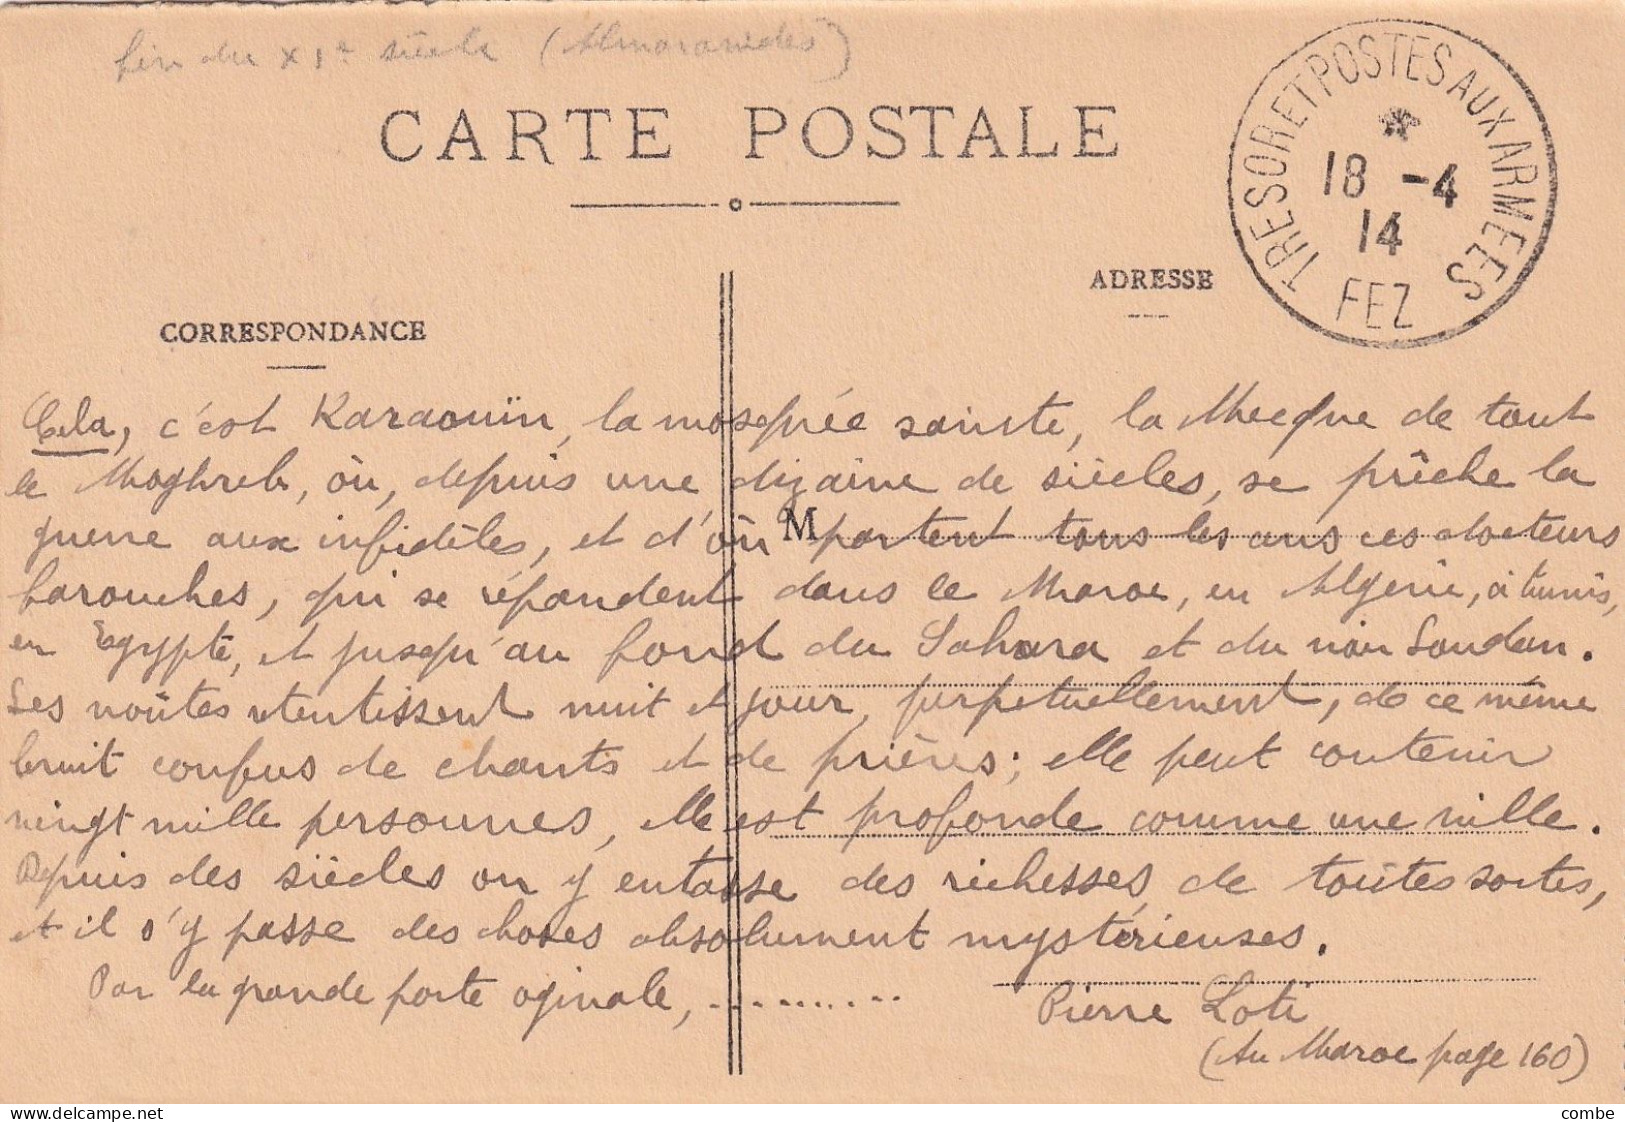 fin du XIe siècle (Almoravides)
CARTE POSTALE
TRESOR ET POSTES AUX ARMEES
18 -4
14
FEZ
ADRESSE
CORRESPONDANCE
Cela, c'est Karaouïn, la mosquée sainte, la Mecque de tout
le Moghreb, où, depuis une dizaine de siècles, se prêche la
guerre aux infidèles, et d'où partent tous les ans ces docteurs
M
farouches, qui se répandent dans le Maroc, en Algérie, à Tunis,
en Egypte, et jusqu'au fond du Sahara et du noir Soudan.
Ses voûtes retentissent nuit et jour, perpetuellement, de ce même
bruit confus de chants et de prières; elle peut contenir
vingt mille personnes, elle est profonde comme une ville.
Depuis des siècles on y entasse des richesses de toutes sortes,
et il s'y passe des choses absolument mystérieuses.
Par la grande porte oginale, ..........
Pierre Loti
(Au Maroc page 160)
combe